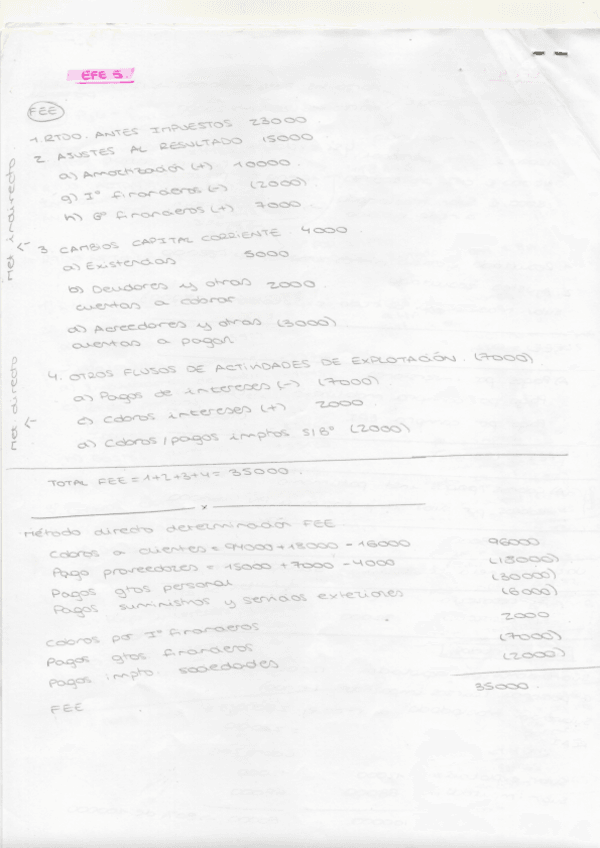 EFE 5.
FEE
1. RTDO. ANTES IMPUESTOS 23000
2. AJUSTES AL RESULTADO 15000
a) Amortización (+) 10000.
g) Iº financieros (-) (2000)
h) Gº financieros (+) 7000
Met indirecto ←
3. CAMBIOS CAPITAL CORRIENTE. 4000
a) Existencias 5000
b) Deudores y otras 2000
cuentas a cobrar
d) Acreedores y otras (3000)
cuentas a pagar
Met directo ←
4. OTROS FLUJOS DE ACTIVIDADES DE EXPLOTACIÓN. (7000)
a) Pagos de intereses (-) (7000)
c) Cobros intereses (+) 2000
d) Cobros/pagos imptos S/Bº (2000)
TOTAL FEE = 1+2+3+4 = 35000.
x
Método directo determinación FEE
Cobros a clientes = 94000 + 18000 - 16000 96000
Pago proveedores = 15000 + 7000 - 4000 (18000)
Pagos gtos personal (30000)
Pagos suministros y servicios exteriores (6000)
Cobros por Iº financieros 2000
Pagos gtos financieros (7000)
Pagos impto. sociedades (2000)
FEE 35000.